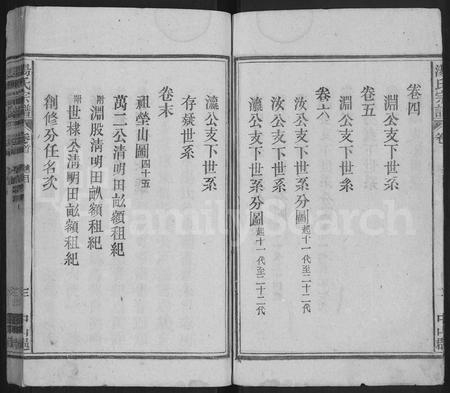 卷四
淵公支下世系分圖
卷五
淵公支下世系
卷六
汝公支下世系
汝公支下世系分圖 起十一代至二十二代
瀛公支下世系分圖 起十一代至二十二代
瀛公支下世系
存疑世系
卷末
祖塋山圖 四十五
萬二公清明田畝額租紀
附淵股清明田畝額租紀
附世棣公清明田畝額租紀
創修分任名次
湯氏宗譜
卷首
三
中山郡
FamilySearch